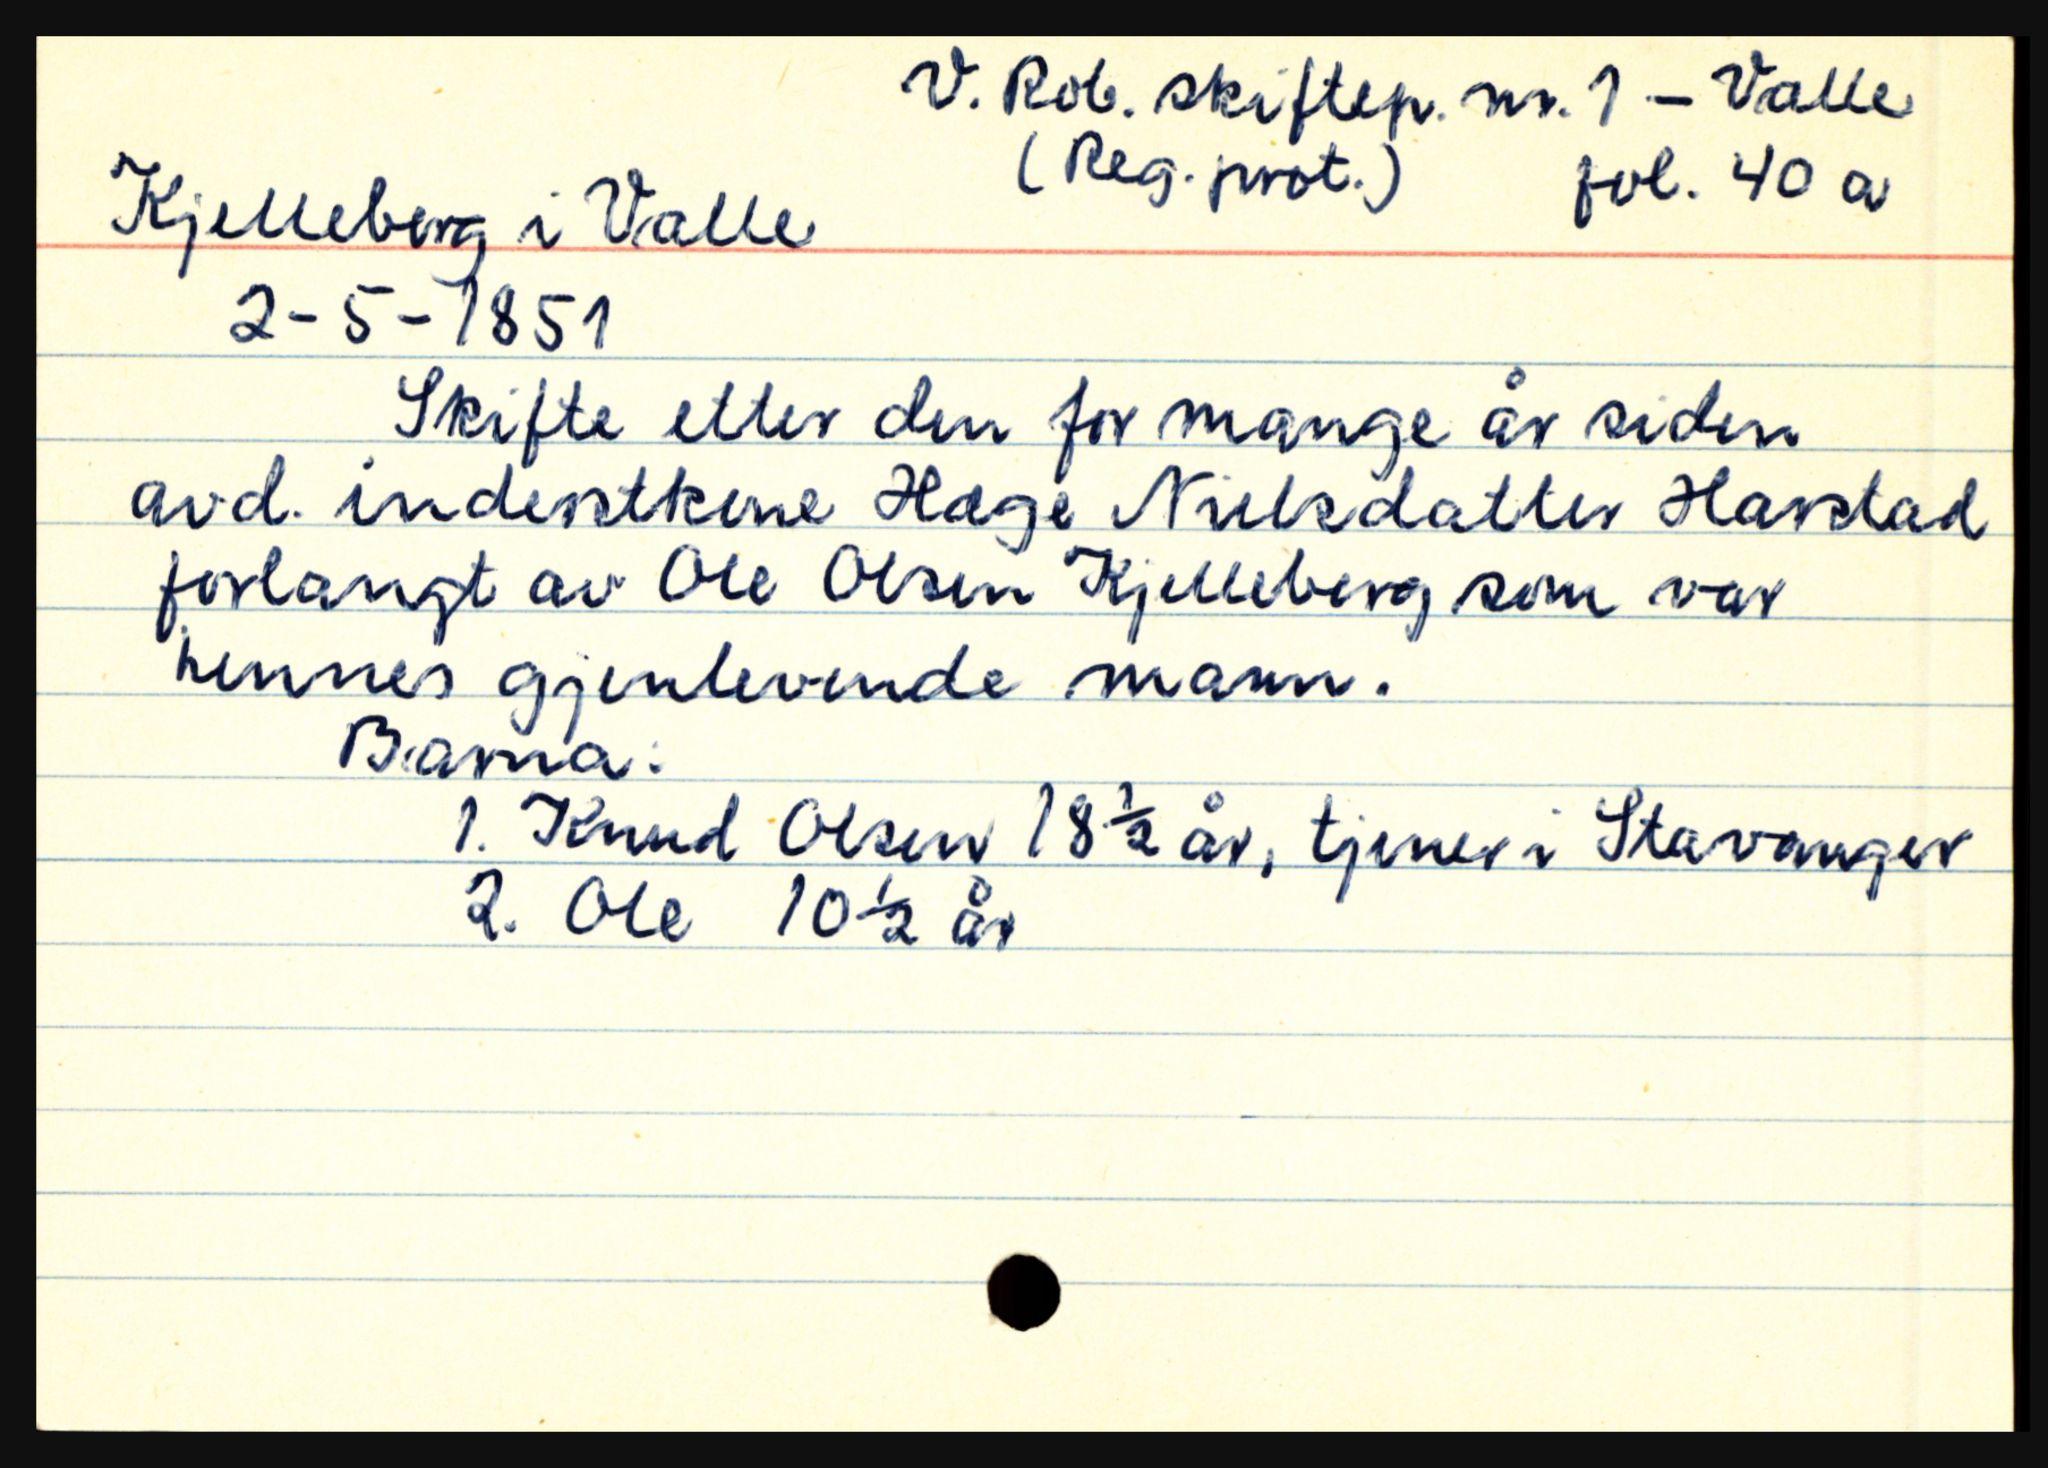 V. Rob. skiftep. nr. 1 - Valle
(Reg. prot.) fol. 40 a
Kjelleberg i Valle
2-5-1851
Skifte etter den for mange år siden
avd. inderstkone Hage Nielsdatter Harstad
forlangt av Ole Olsen Kjelleberg som var
hennes gjenlevende mann.
Barna:
1. Knud Olsen 18 1/2 år, tjener i Stavanger
2. Ole 10 1/2 år